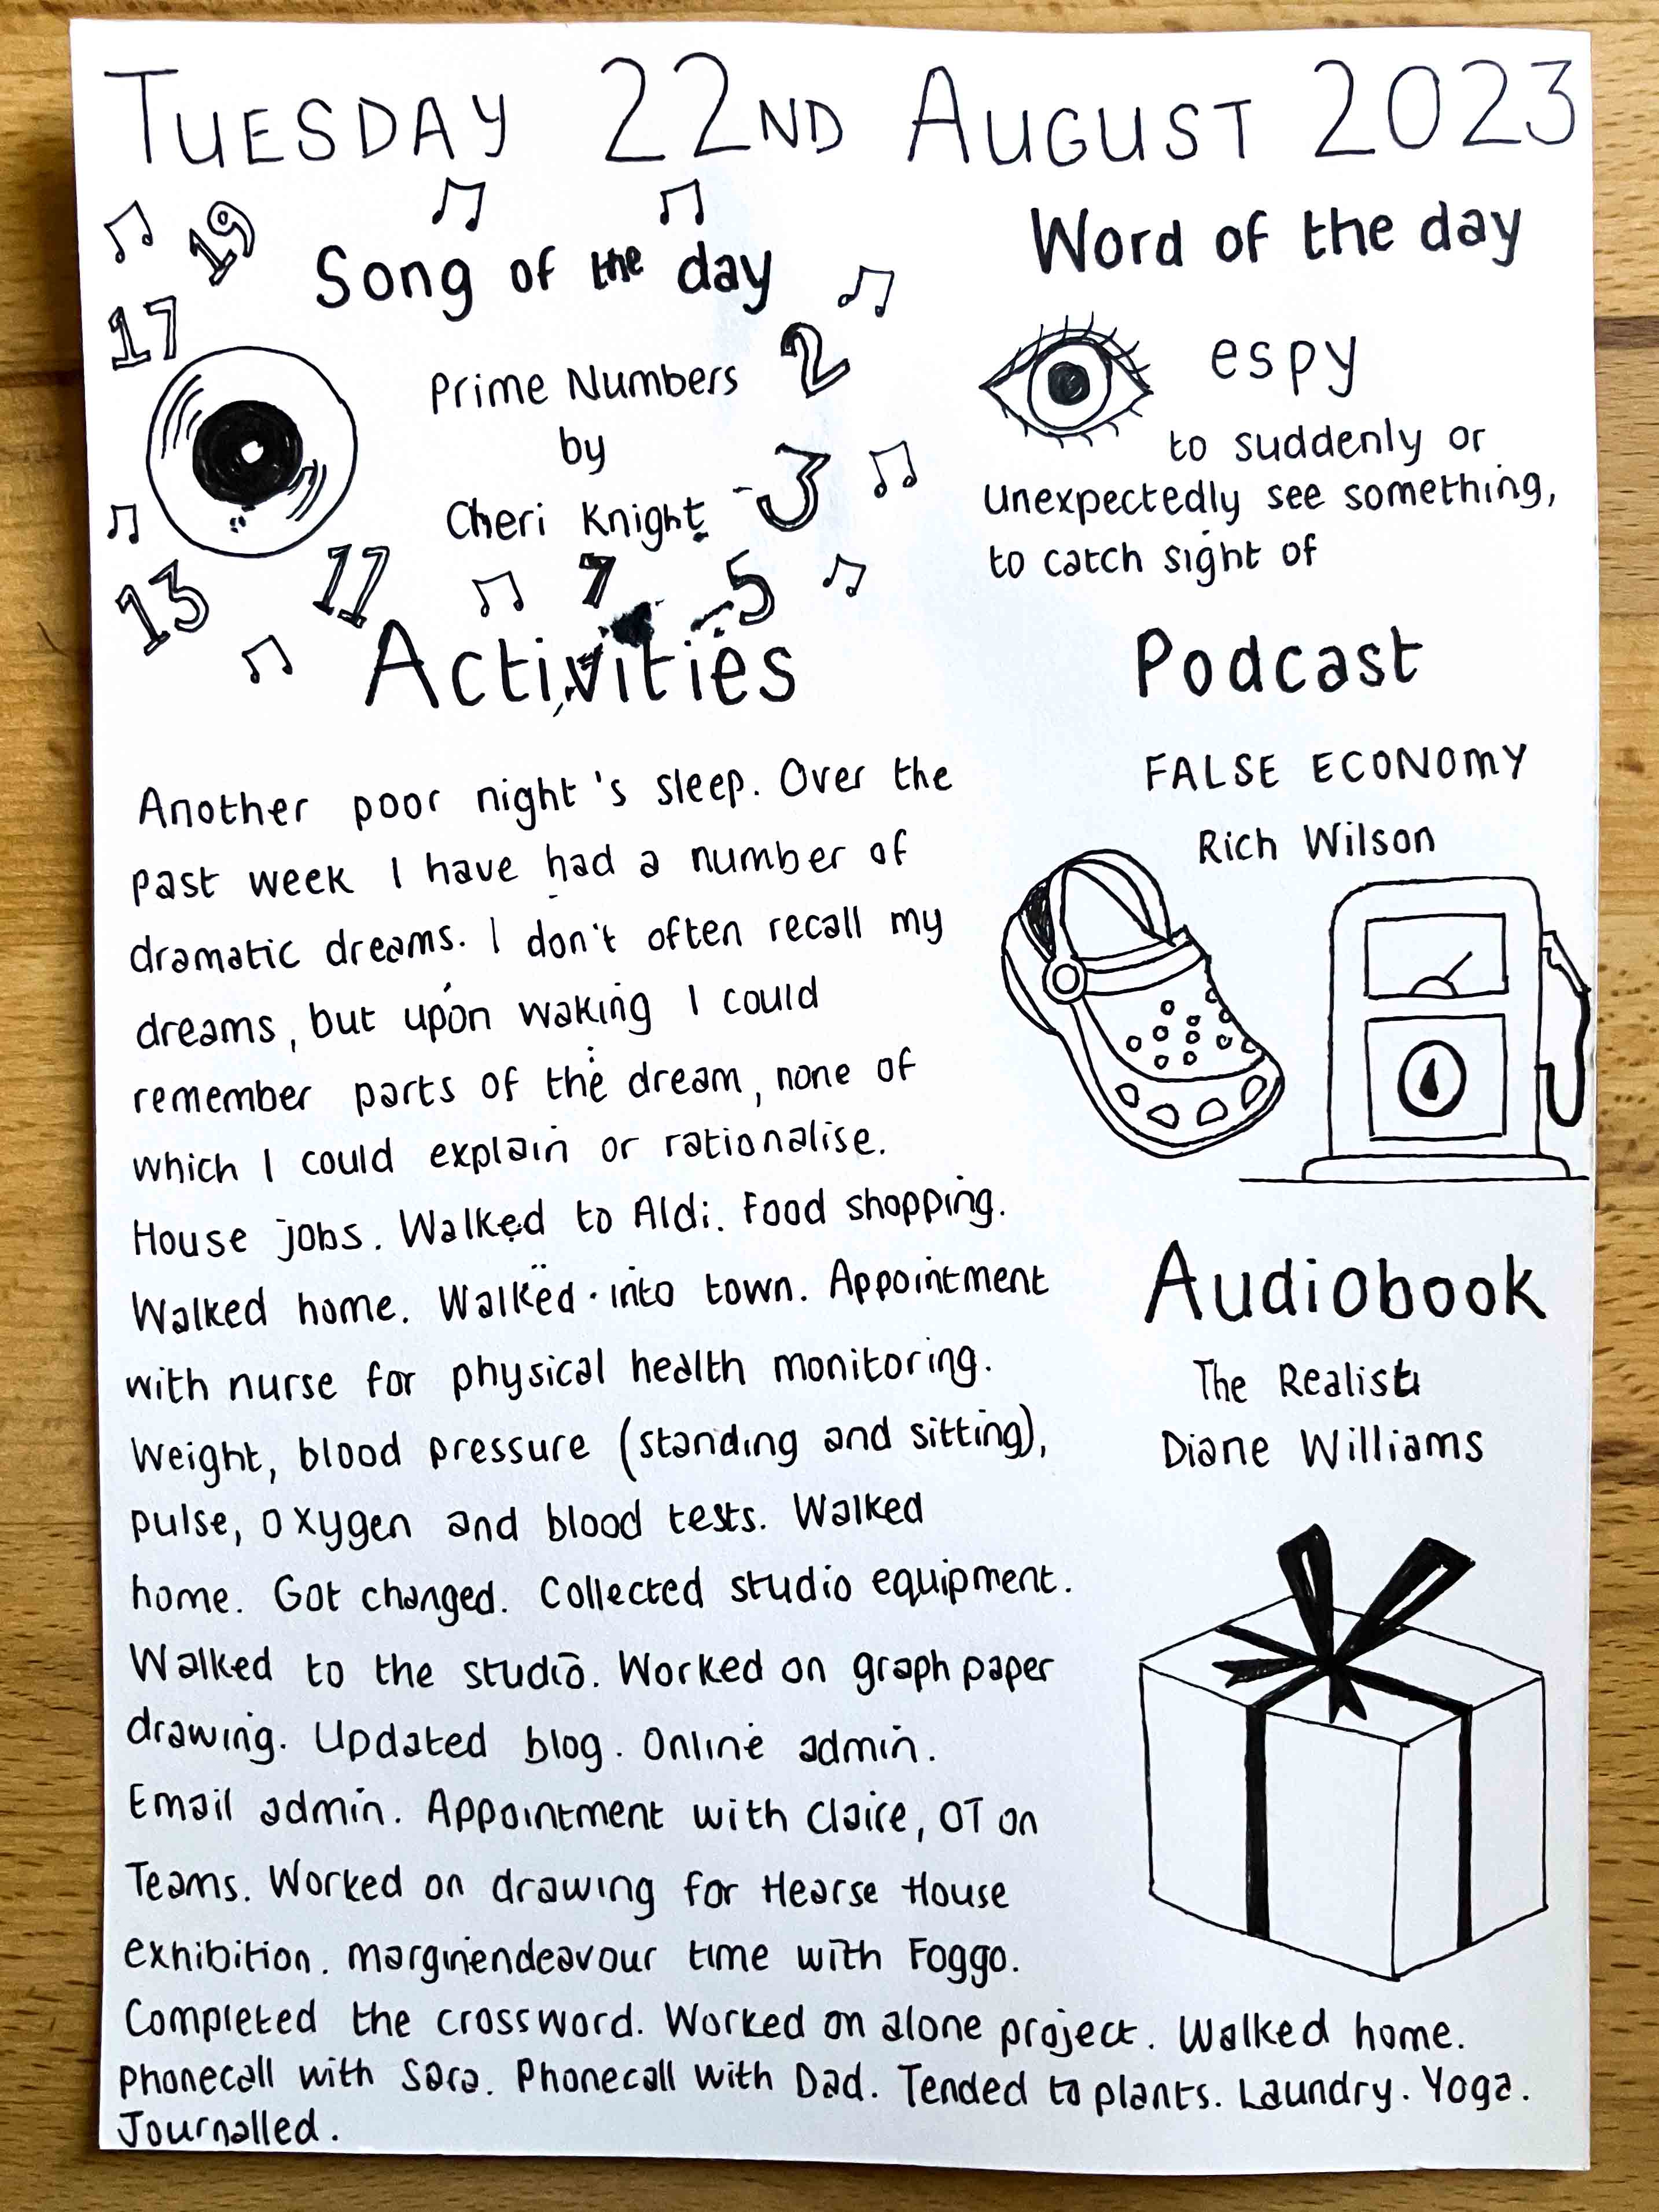 TUESDAY 22ND AUGUST 2023
Song of the day
19
17
2
Prime Numbers
by
Cheri Knight
3
5
7
11
13
Word of the day
espy
to suddenly or
unexpectedly see something,
to catch sight of
Activities
Another poor night's sleep. Over the
past week I have had a number of
dramatic dreams. I don't often recall my
dreams, but upon waking I could
remember parts of the dream, none of
which I could explain or rationalise.
House jobs. Walked to Aldi. Food shopping.
Walked home. Walked into town. Appointment
with nurse for physical health monitoring.
Weight, blood pressure (standing and sitting),
pulse, oxygen and blood tests. Walked
home. Got changed. Collected studio equipment.
Walked to the studio. Worked on graph paper
drawing. Updated blog. Online admin.
Email admin. Appointment with Claire, OT on
Teams. Worked on drawing for Hearse House
exhibition. marginendeavour time with Foggo.
Completed the crossword. Worked on alone project. Walked home.
Phonecall with Sara. Phonecall with Dad. Tended to plants. Laundry. Yoga.
Journalled.
Podcast
FALSE ECONOMY
Rich Wilson
Audiobook
The Realist
Diane Williams